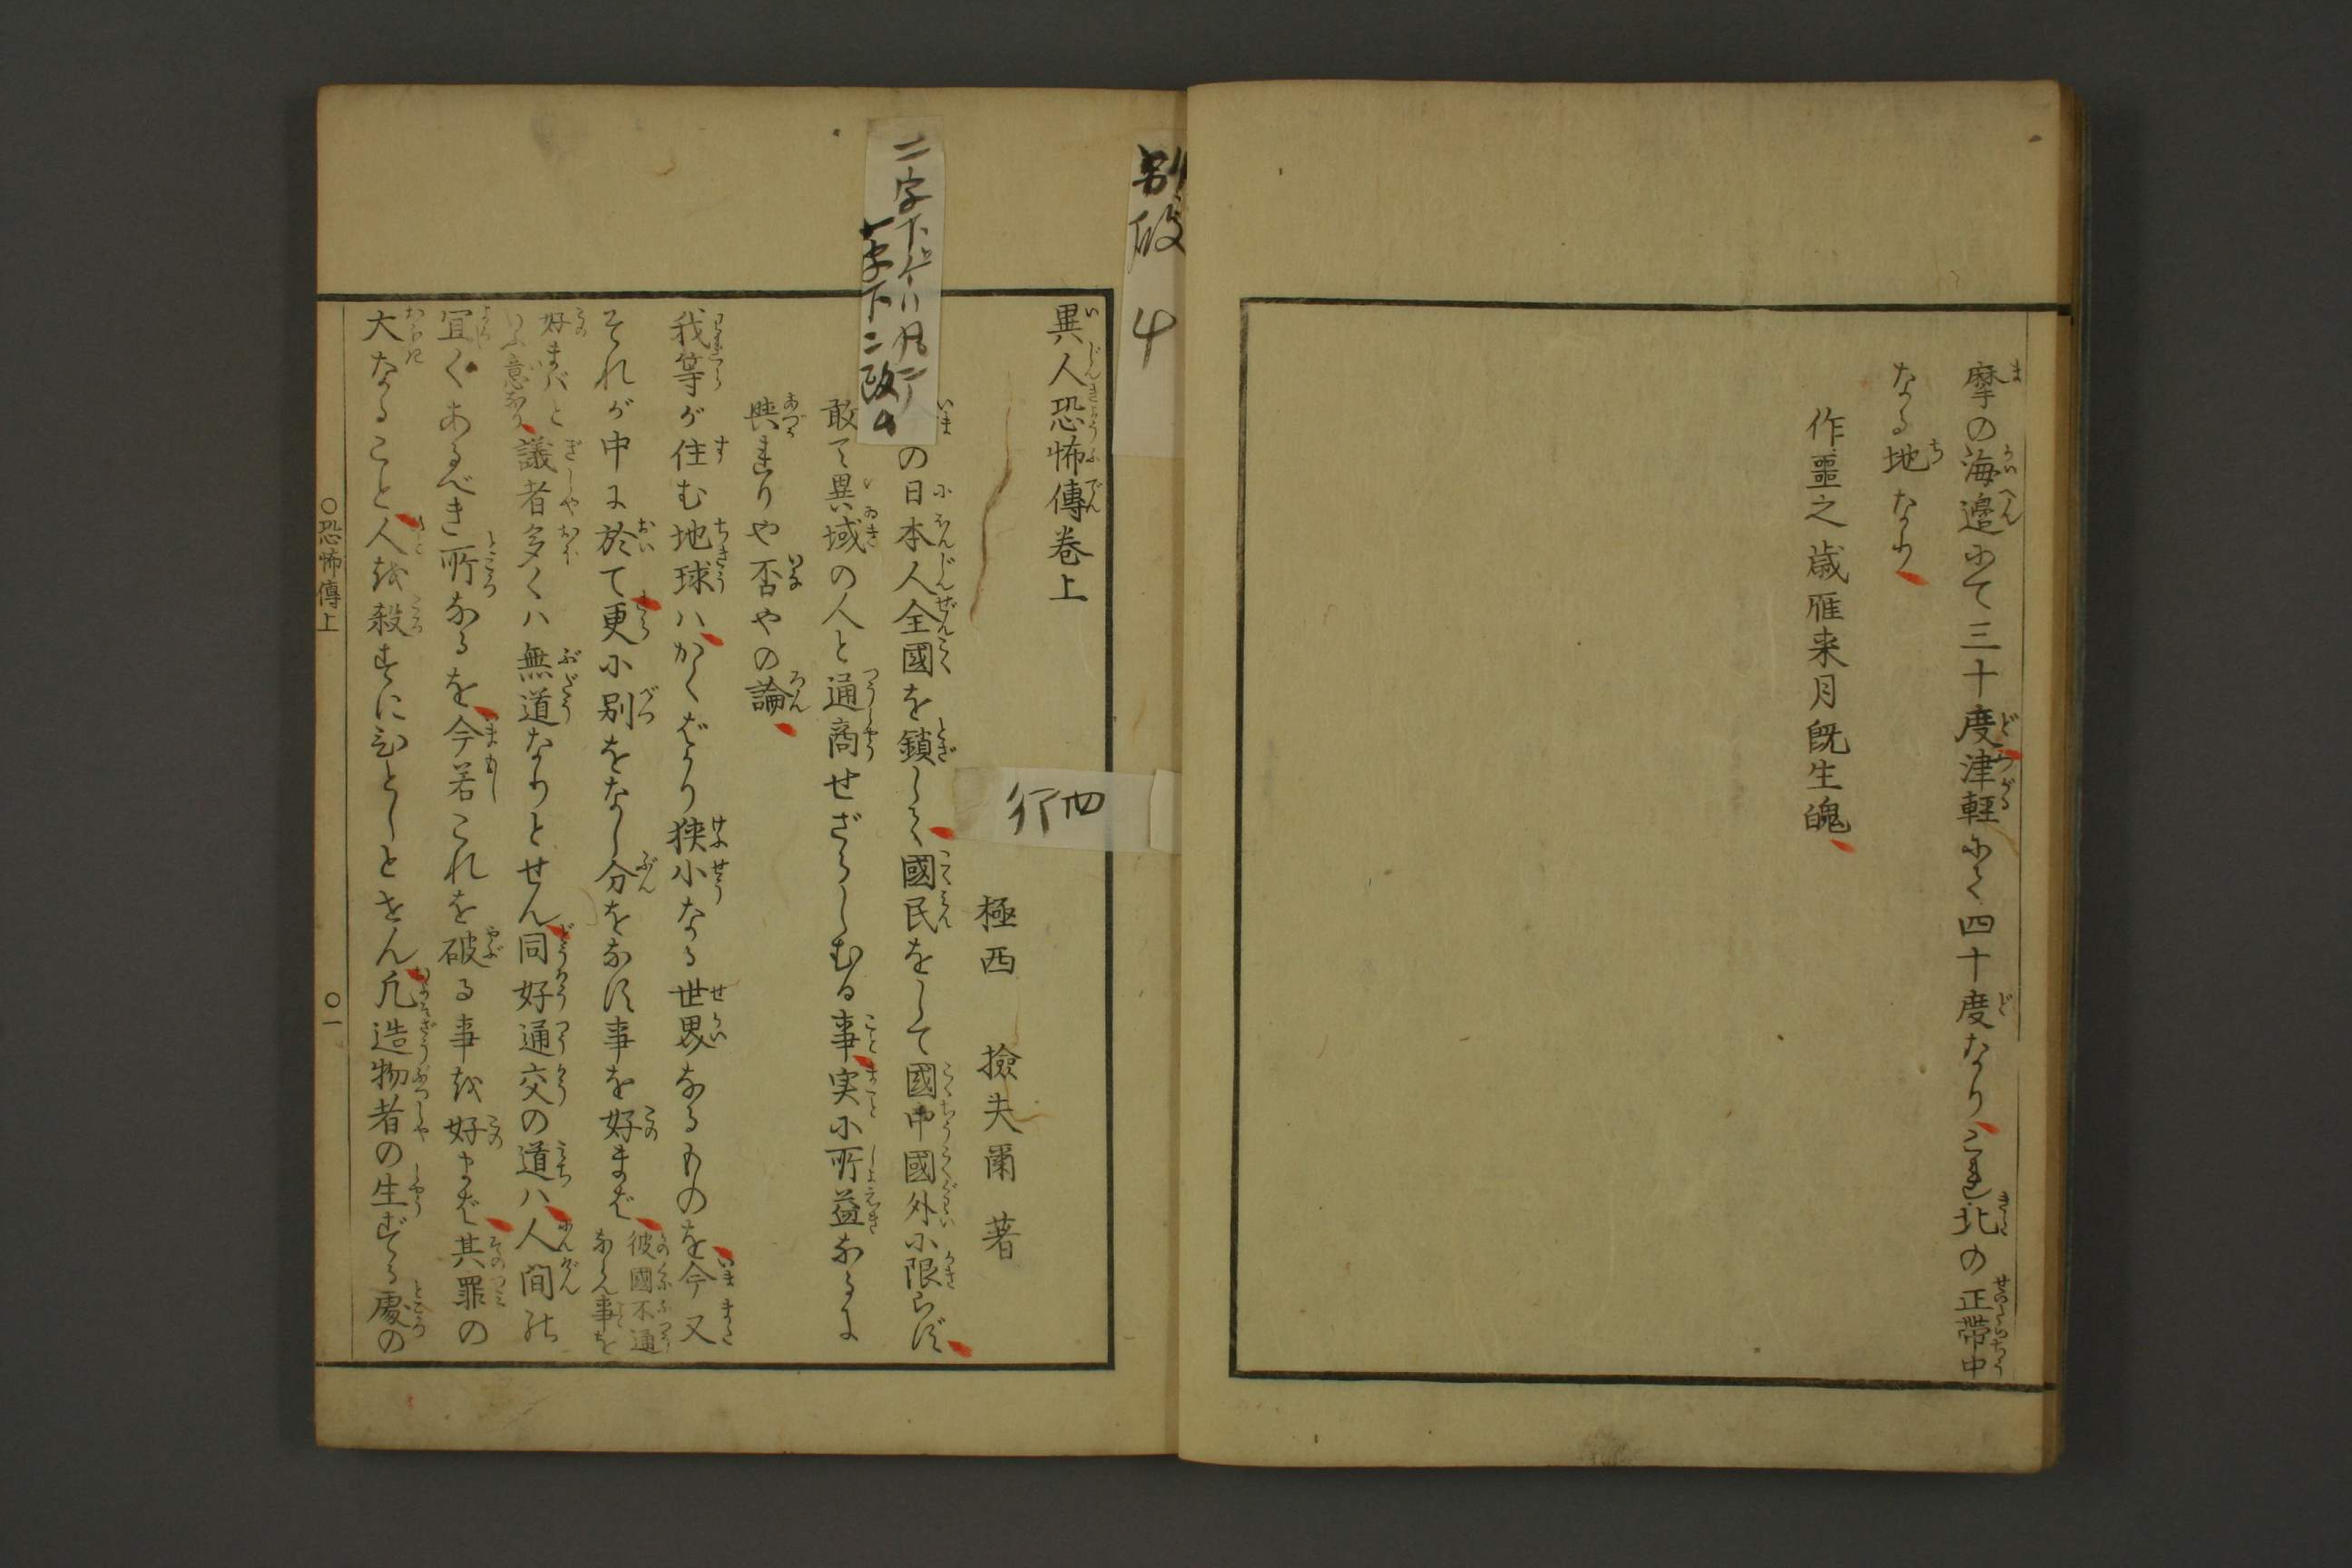 摩の海邉にて三十度津軽にて四十度なりこれ北の正帯中
なる地なり
作噩之歳雁来月既生魄
別段
四行
二字下ケハ凡テ
一字下ニ改ム
異人恐怖傳巻上
極西 撿夫爾 著
今の日本人全國を鎖して國民をして國中國外に限らず
敢て異域の人と通商せざらしむる事実に所益なるに
與れりや否やの論
我等が住む地球ハかくばかり狭小なる世界なるものを今又
それが中に於て更に別をなし分をなす事を好まば
彼國不通
ならん事を
好まバと
いふ意なり
議者多くハ無道なりとせん同好通交の道ハ人間の
宜くあるべき所なるを今若これを破る事を好まば其罪の
大なること人を殺すにひとしとせん凡造物者の生ずる處の
○恐怖傳上
○一